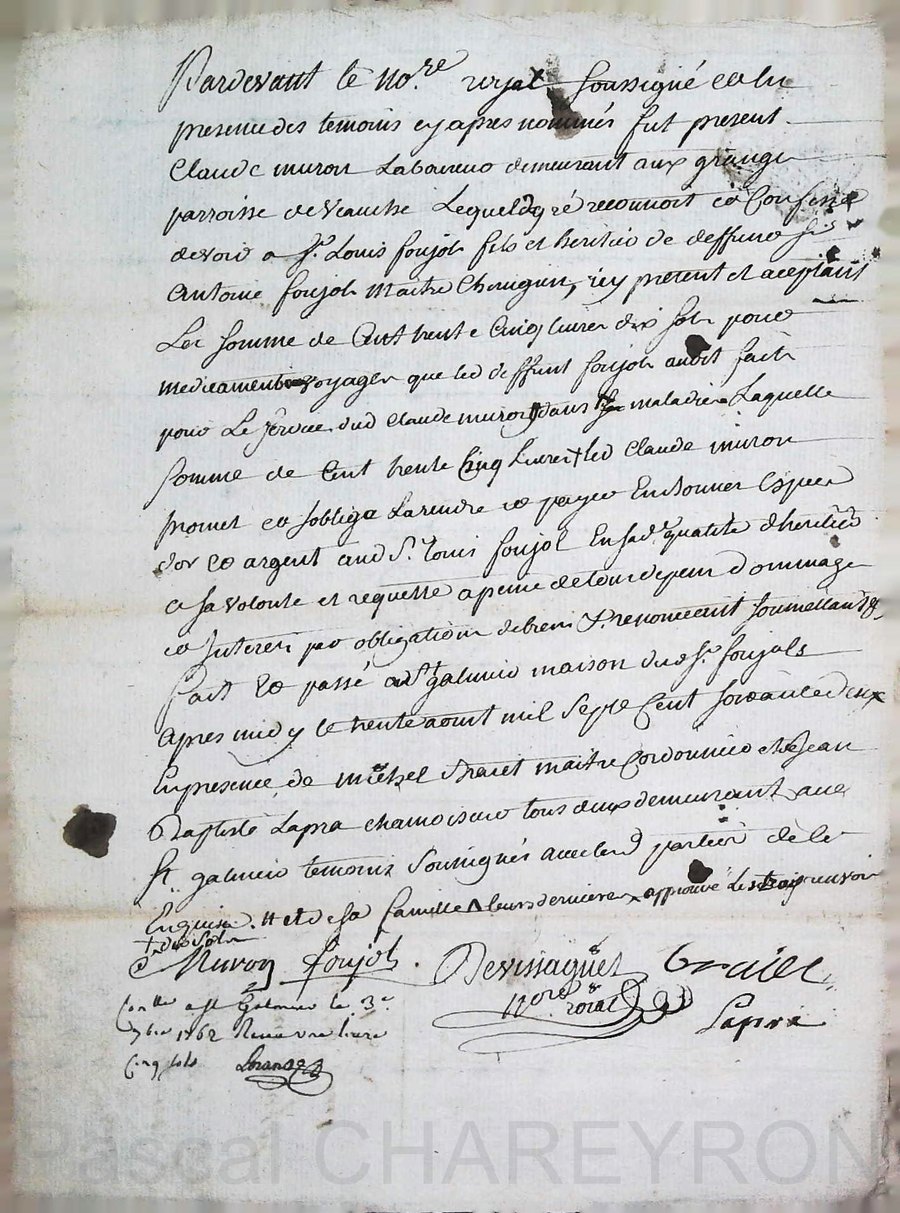 Pardevant le nore. royal soussigné et en la
presence des temoins cy apres nommés fut present
Claude muron Laboureur demeurant aux grange
parroisse de Veauche Lequel de gré reconnoit et Confesse
devoir a Sr. Louis foujols fils et heritier de deffunt Sr.
Antoine foujols maitre Chirugien, icy present et aceptant
La somme de Cent trente Cinq livres dix sols pour
medicaments voyages que led deffunt foujols avoit fait
pour Le service dud Claude muron dans maladies Laquelle
somme de Cent trente Cinq Livres + led Claude muron
promet et soblige La rendre et payer En bonnes Espece
d'or et argent aud Sr. Louis foujol En sad. qualité d'heritier
a sa volonté et requette a peine de tous depens Dommage
et Interest par obligation de biens &. renonceant soumettant &.
fait et passé a St galmier maison dud Sr. foujols
apres midy le trente aoust mil Sept Cent soixante deux
En presence de michel maitre Cordonnier et Jean
Baptiste Lapra chamoiseur tous deux demeurant aud
St. galmier temoins Soussignés avec led parties de le
Enquis. # et de sa famille ^ leurs dernieres x approuvé Les trois renvoir
+ dix Sols
Muron foujols . Devissaguet
nore roial
Lapra
Conllé a St Galmier le 3e
7bre 1762 Receu une livre
Cinq sols
Pascal CHAREYRON